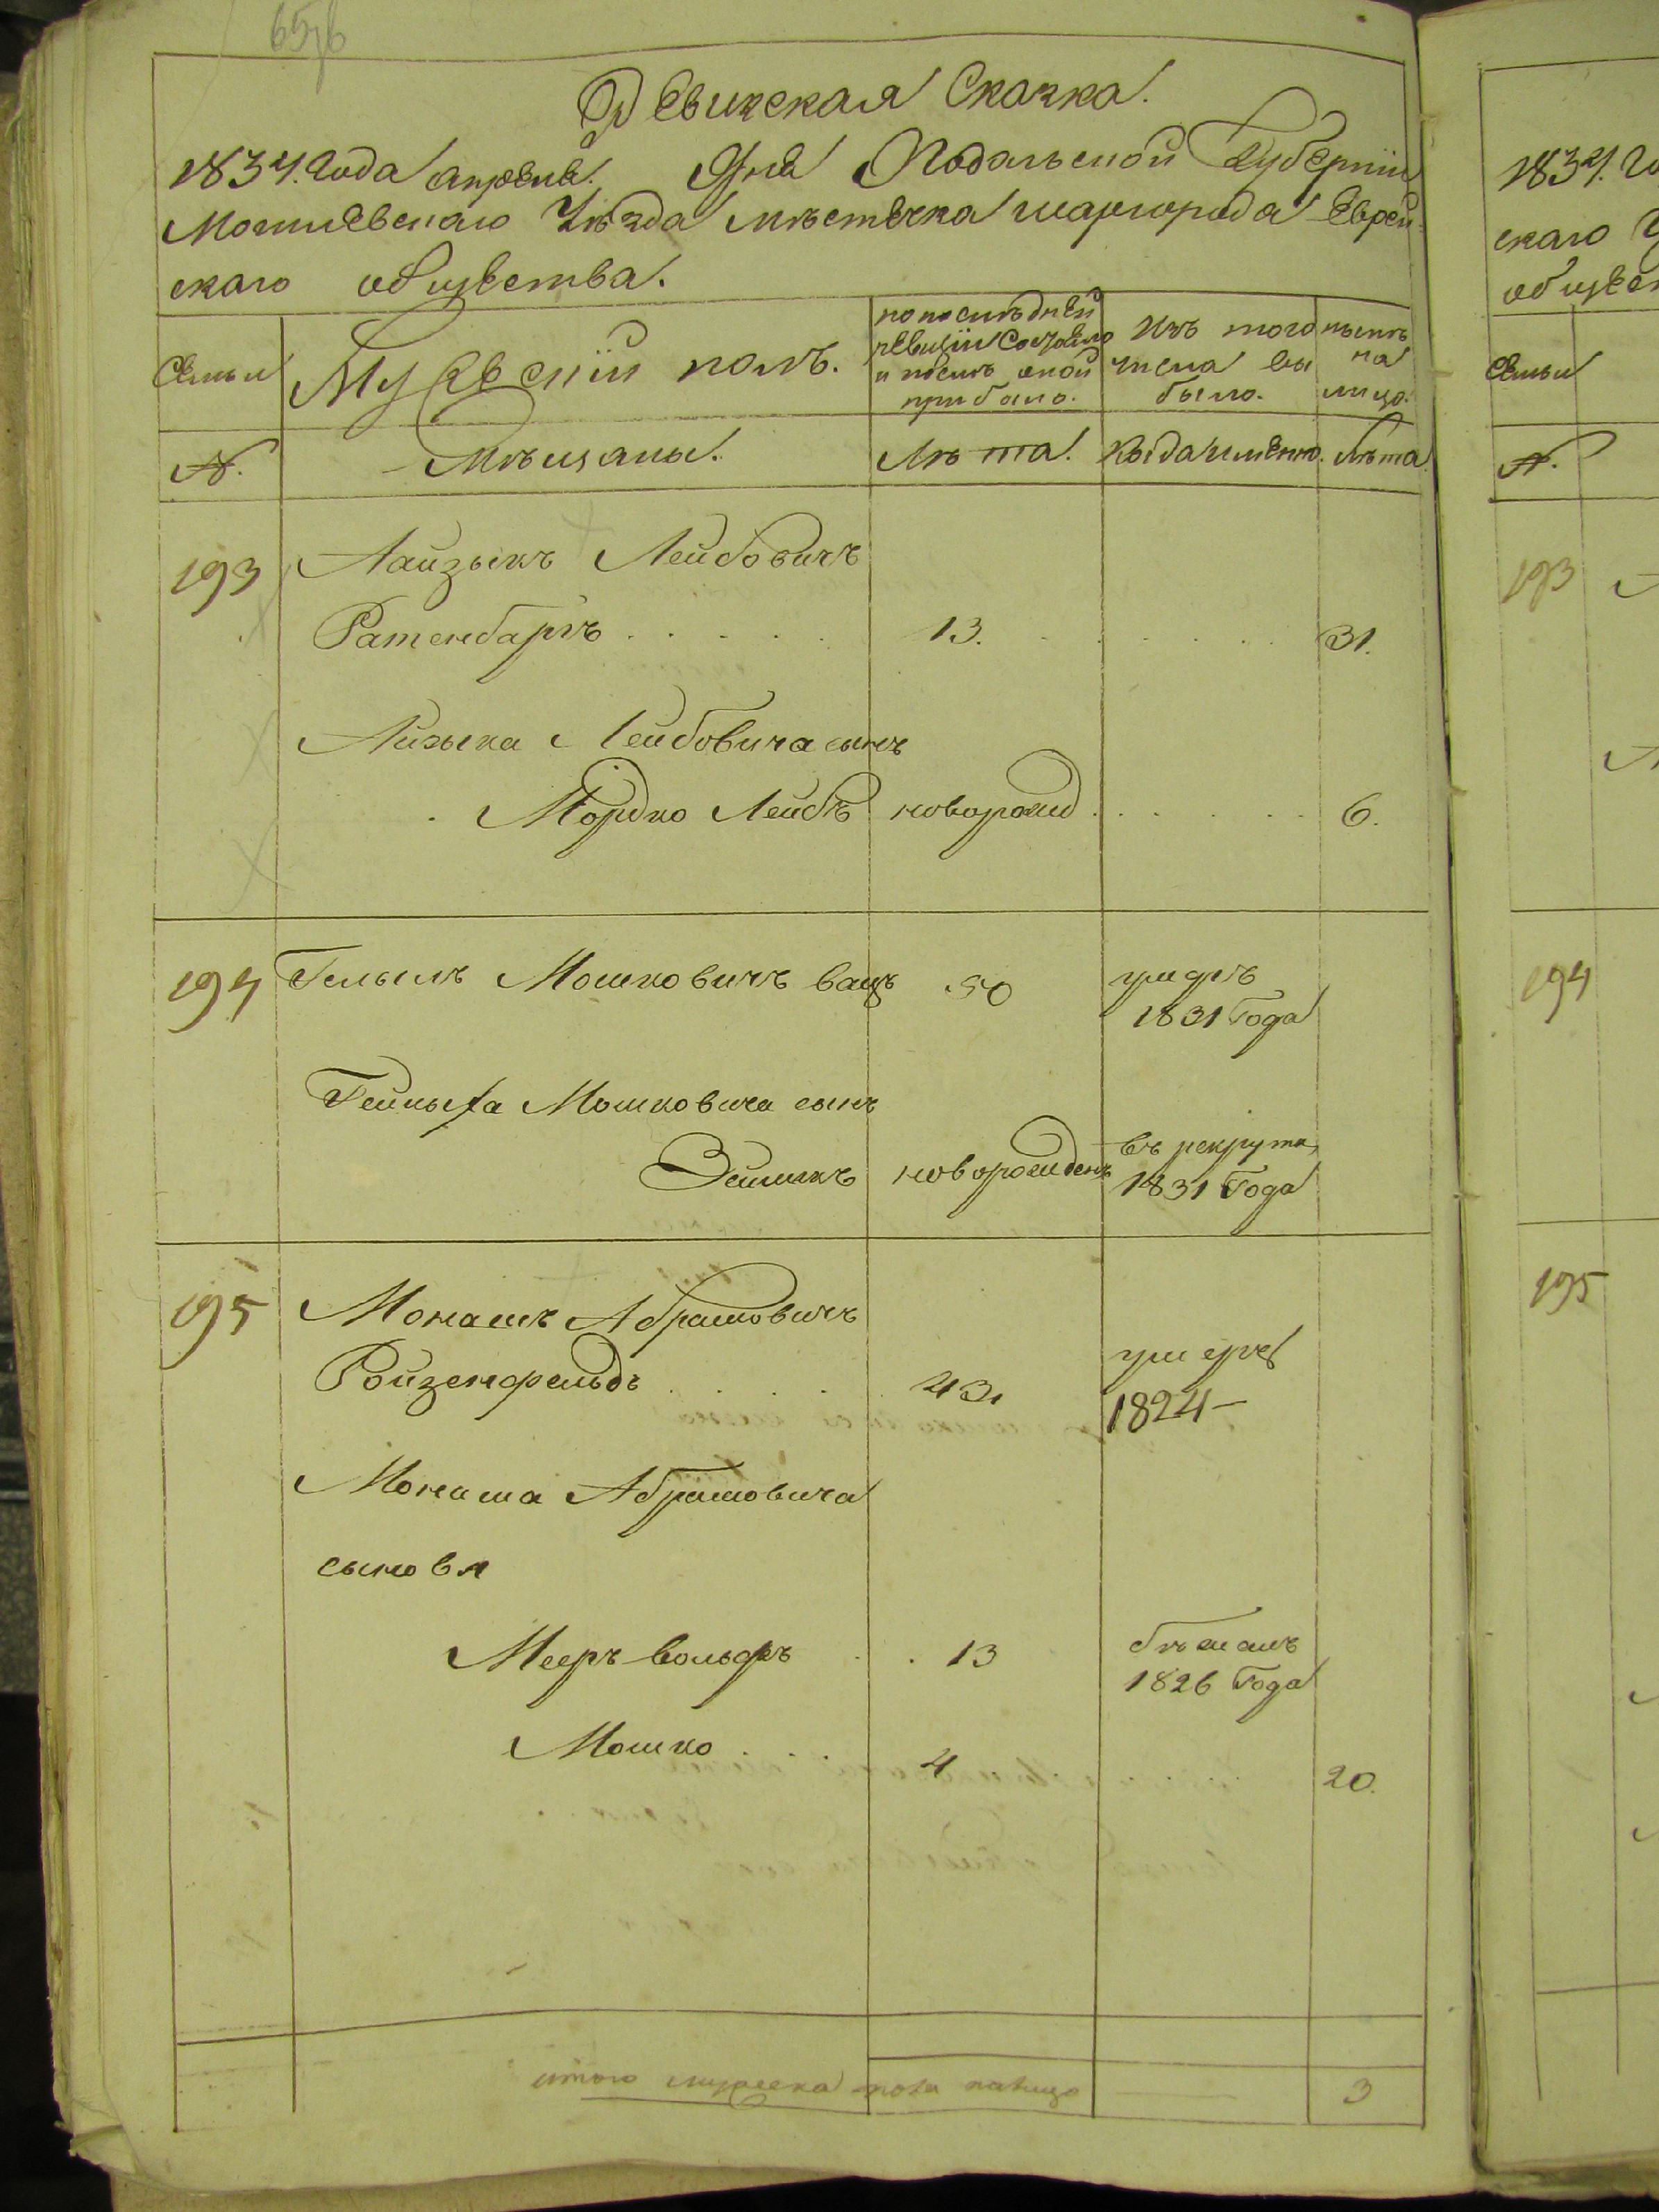 Ревизская Сказка.
1834. Года апреля. Дня Подольской Губерніи
Могилевскаго Уѣзда мѣстечка шаргорода Еврей-
скаго общества.
Семьи
Мужескій полъ.
по послѣдней
ревизіи Состояло
и послѣ оной
прибыло.
Изъ того
числа вы
было.
нынѣ
на
лицо.
№.
Мѣщаны.
Лѣта.
Когда именно.
лѣта.
193
Аайзыкъ Лейбовичъ
Ратенбаргъ
13.
31.
Айзыка Лейбовича сынъ
Мордко Лейбъ новорожд
6.
194 Мошковичъ вацъ 50 умеръ
1831 Года
Мошковича сынъ
новорожденъ въ рекрута
1831 Года
195 Монашъ Абрамовичъ
Ройзенфельдъ 43 умеръ
1824 -
Монаша Абрамовича
сыновя
Мееръ вольфъ 13 бѣжалъ
1826 Года
Мошко 4 20.
итого мужеска пола налицо 3
1834. Го
скаго У
общес
Семьи
№.
193
194
195